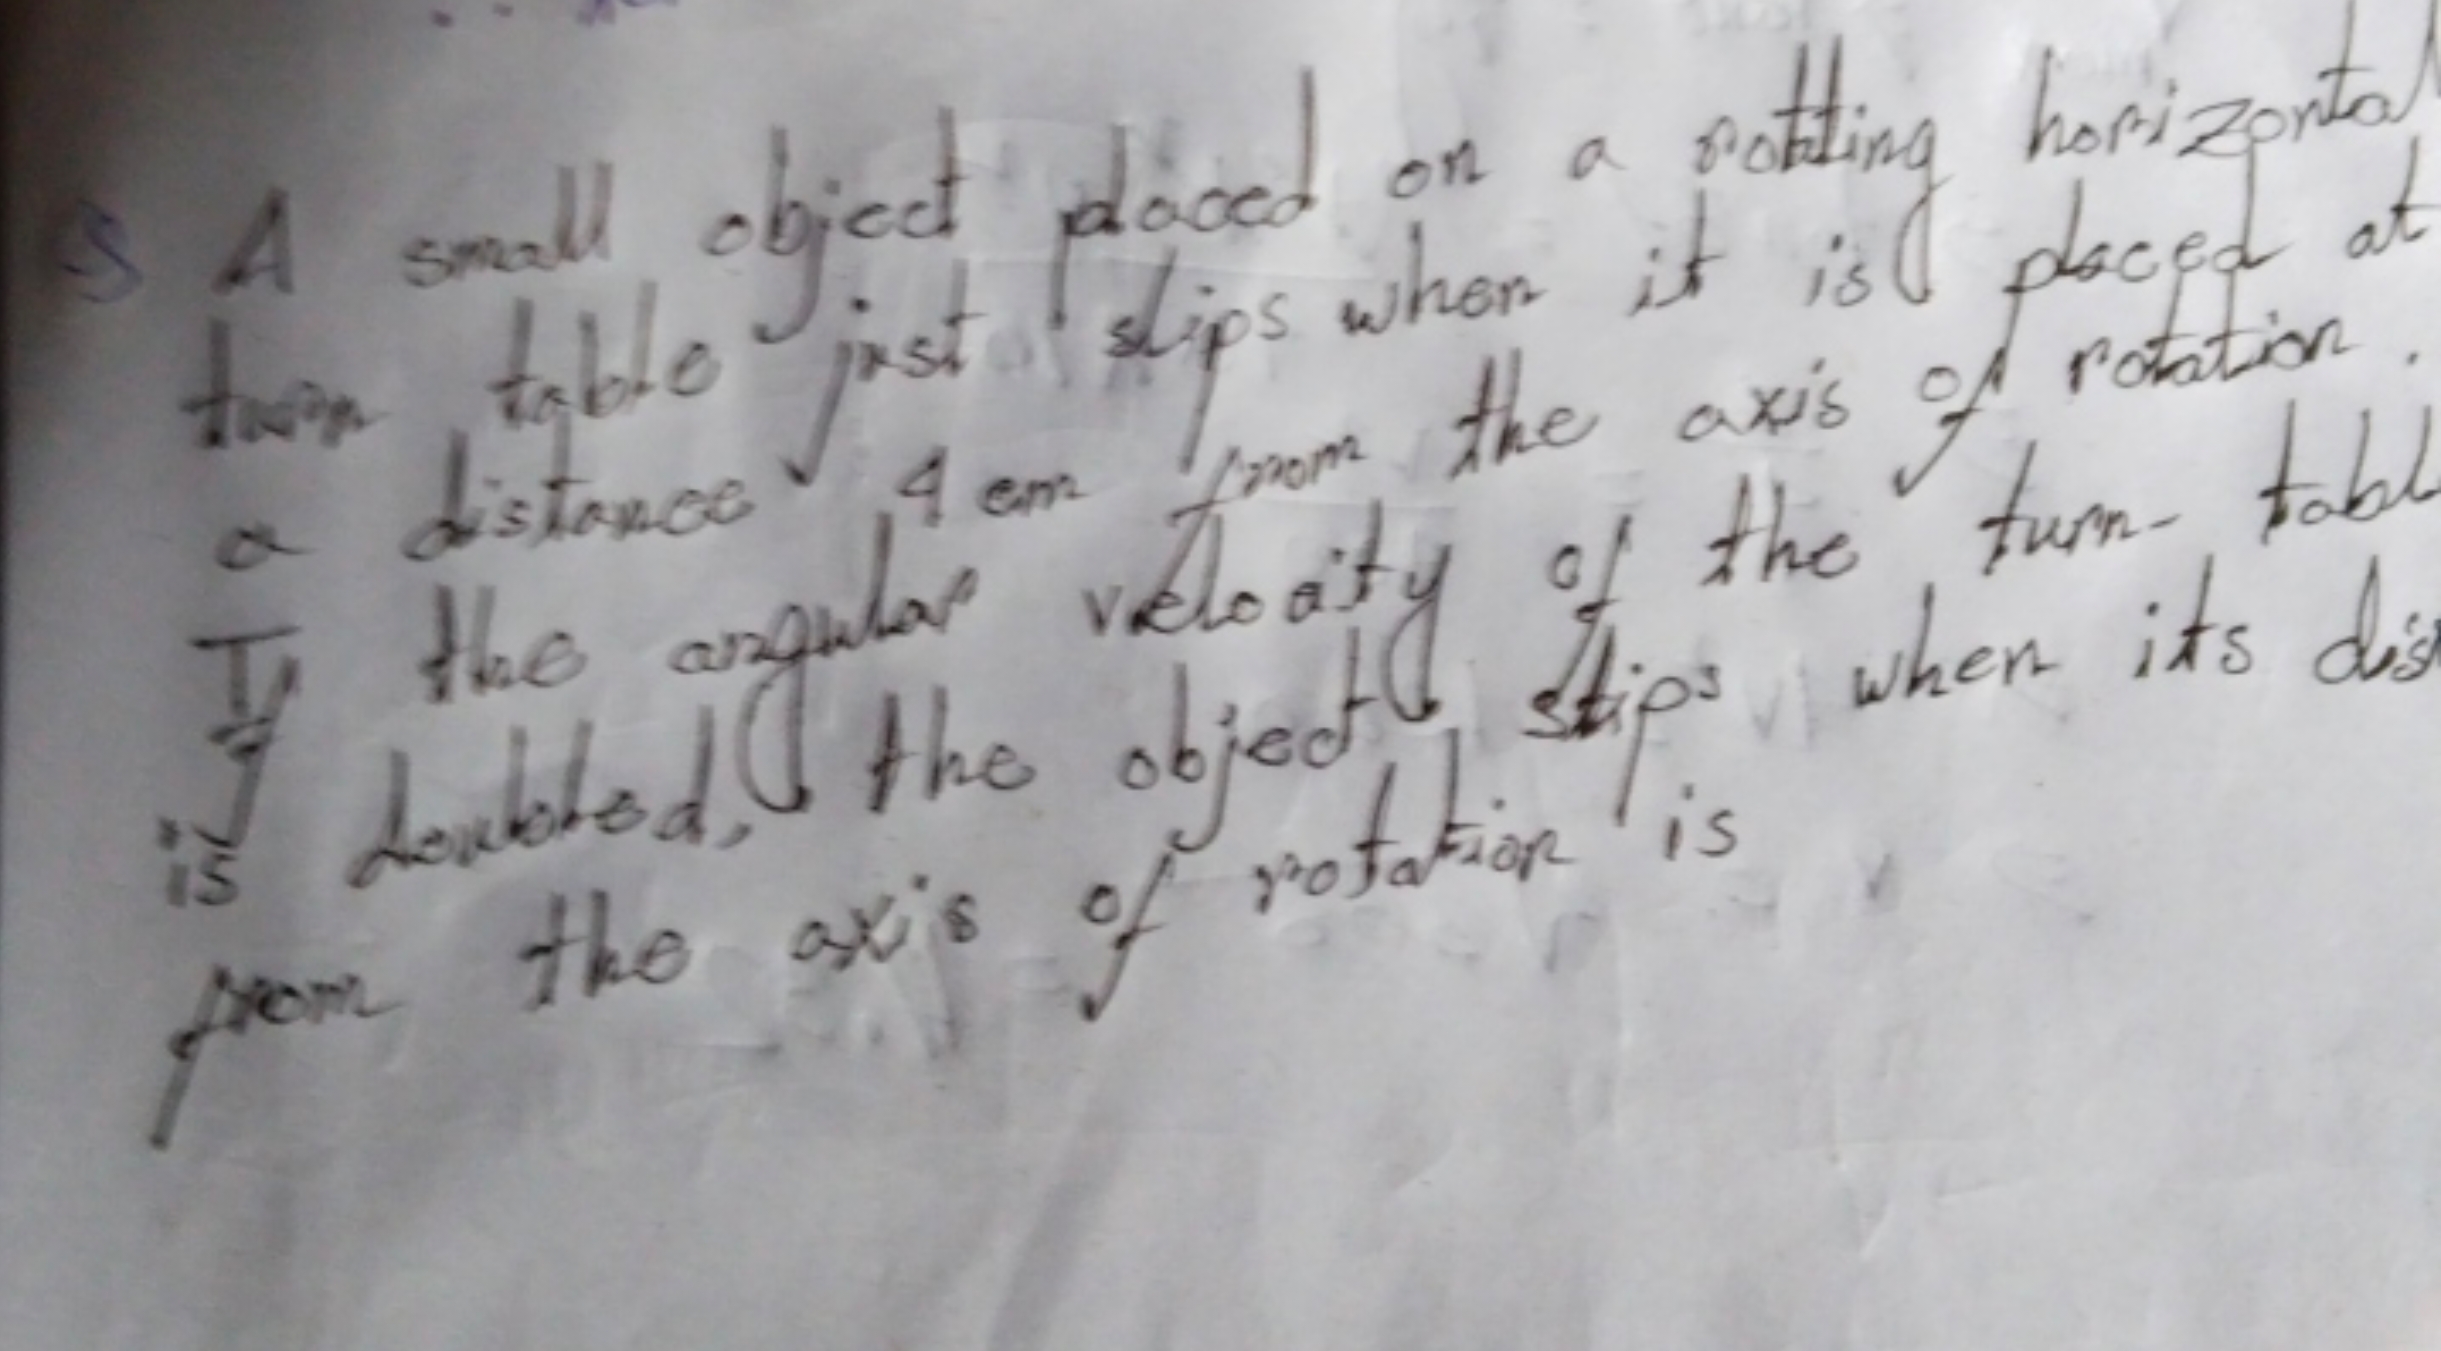 S A small object placed on a rotating horizontal
turn table just slips when it is placed at
a distance 4 cm from the axis of rotation.
If the angular velocity of the turn-tabl
is doubled, the object slips when its dis
from the axis of rotation is